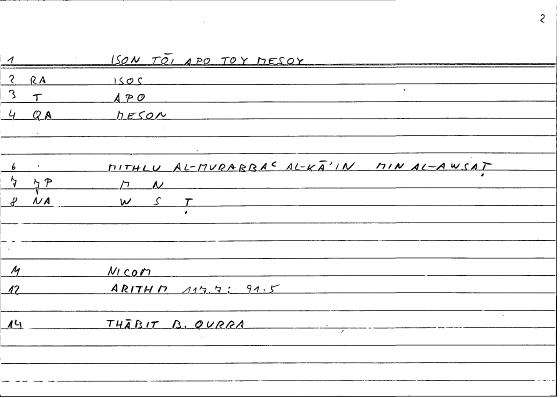 2
1 ISON TŌI APO TOY MESOY
2 RA ISOS
3 T APO
4 QA MESON
6 MITHLU AL-MURABBAʿ AL-KĀ'IN MIN AL-AWSAṬ
7 MP M N
8 NA W S Ṭ
11 NICOM
12 ARITHM 117.7: 91.5
14 THĀBIT B. QURRA